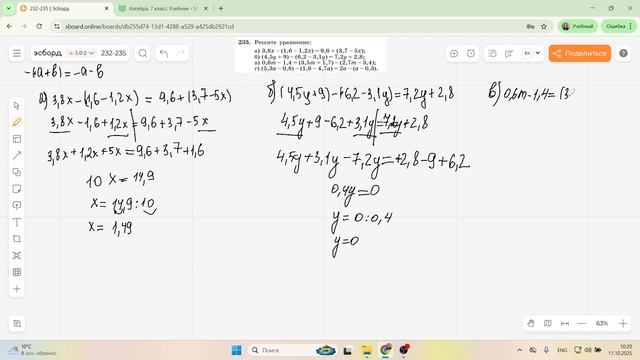 232-235 | Эсборд
Алгебра. 7 класс. Учебник
sboard.online/boards/db255d74-13d1-4288-a529-a425db2921cd
Учебный
эсборд
v.3.0 β
232-235
Поделиться
235. Решите уравнение:
а) 3,8x – (1,6 – 1,2x) = 9,6 + (3,7 – 5x);
б) (4,5y + 9) – (6,2 – 3,1y) = 7,2y + 2,8;
в) 0,6m – 1,4 = (3,5m + 1,7) – (2,7m – 3,4);
г) (5,3a – 0,8) – (1,6 – 4,7a) = 2a – (a – 0,3).
-(a+b)=-a-b
а) 3,8x-(1,6-1,2x) = 9,6+(3,7-5x)
3,8x-1,6+1,2x=9,6+3,7-5x
3,8x+1,2x+5x=9,6+3,7+1,6
10 x = 14,9
x = 14,9:10
x = 1,49
б) (4,5y+9)-(6,2-3,1y)=7,2y+2,8
4,5y+9-6,2+3,1y=7,2y+2,8
4,5y+3,1y-7,2y=+2,8-9+6,2
0,4y=0
y=0:0,4
y=0
в) 0,6m-1,4=(3
63%
10°C
В осн. облачно
Поиск
ENG
10:20
11.10.2025